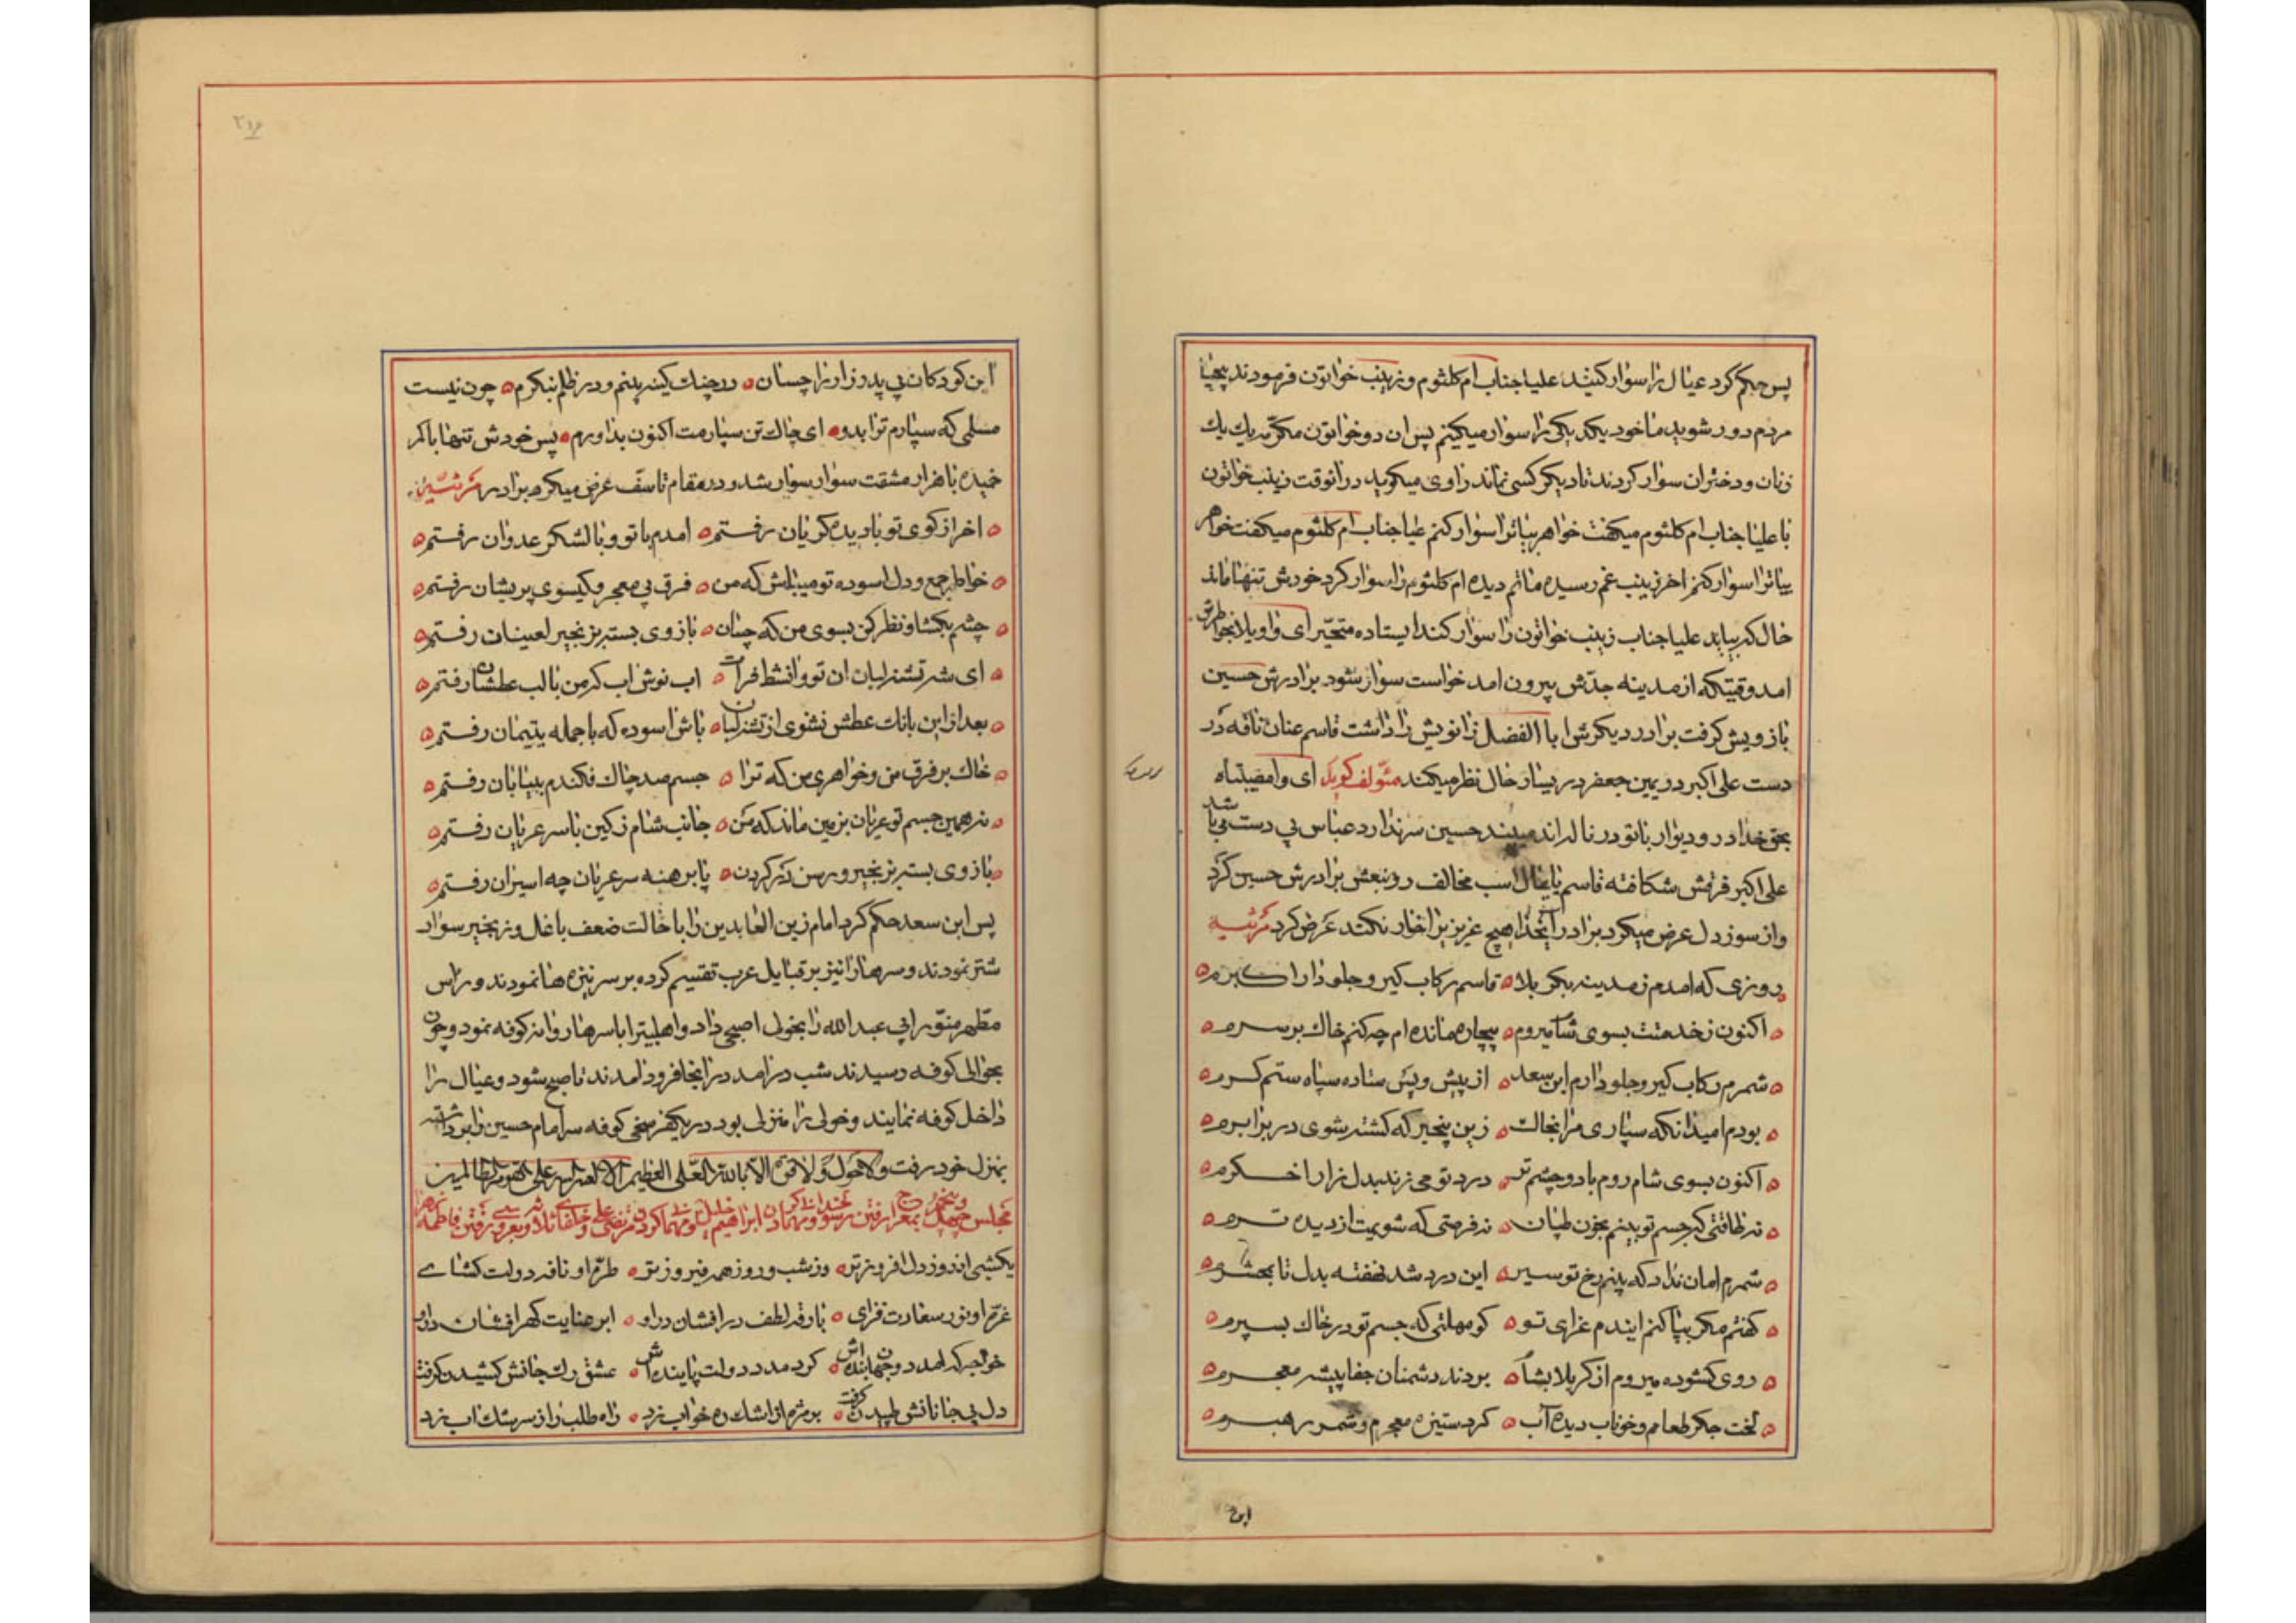 پس حکم کرد عیال را سوار کنید علیا جناب ام کلثوم و زینب خواتون فرمودند بیحیا
مردم دور شوید ما خود یکدیکی را سوار میکنیم پس ان دو خواتون مکرمه یك یك
زنان و دختران سوار کردند تا دیکر کسی نماند راوی میکوید در انوقت زینب خواتون
با علیا جناب ام کلثوم میکفت خواهر بیا ترا سوار کنم علیا جناب ام کلثوم میکفت خواهر
بیا ترا سوار کنم اخر زینب غم رسیده ماتم دیده ام کلثوم را سوار کرد خودش تنها ماند
حال که بیاید علیا جناب زینب خواتون را سوار کند ایستاده متحیر ای واویلا بخواطرش
امد وقتیکه از مدینه جدش بیرون امد خواست سوار شود برادرش حسین
بازویش کرفت برادر دیکرش ابا الفضل زانویش را داشت قاسم عنان ناقه در
دست علی اکبر در یمین جعفر در یسار حال نظر میکند مؤلف کوید ای وا مصیبتاه
بحق خدا در و دیوار با تو در ناله اند میبیند حسین سر ندارد عباس بی دست
علی اکبر فرقش شکافته قاسم پایمال اسب مخالف رو بنعش برادرش حسین کرد
و از سوز دل عرض میکرد برادر هیچ عزیزیرا خار نکند عرض کرد مرثیه
روزی که امدم ز مدینه بکربلا ه قاسم رکاب کیر و جلودار اکبرم ه
ه اکنون ز خدمتت بسوی شام میروم ه بیچاره مانده ام چه کنم خاك بر سرم ه
ه شمرم رکاب کیر و جلودارم ابن سعد ه از پیش و پس ستاده سپاه ستم کرم ه
ه بودم امید انکه سپاری مرا بخاك ه زین بیخبر که کشته شوی در برابرم ه
ه اکنون بسوی شام روم با دو چشم تر ه درد تو می زند بدل زار اخکرم ه
ه نه طاقتی که جسم تو بینم بخون طپان ه نه فرصتی که شویمت از دیده ترم ه
ه شمرم امان نداد که بینم رخ تو سیر ه این درد شد نهفته بدل تا بمحشرم ه
ه کفتم مکر بپا کنم ایندم عزای تو ه کو مهلتی که جسم تو در خاك بسپرم ه
ه روی کشوده میروم از کربلا بشام ه بردند دشمنان جفا پیشه معجرم ه
ه لخت جکر طعام و خوناب دیده آب ه کرد ستیزه معجرم و شمر رهبرم ه
این
۲۱۶
این کودکان بی پدر زار را چسان ه در چنك کینه بینم و در ظلم بنکرم ه چون نیست
مسلمی که سپارم ترا بدو ه ای خاك تن سپارمت اکنون بداورم ه پس خودش تنها با کمر
خمیده با هزار مشقت سوار سوار شد و در مقام تاسف عرض میکرد برادر مرثیه
ه اخر از کوی تو با دیده کریان رفتم ه امدم با تو و با لشکر عدوان رفتم ه
ه خاطر جمع و دل اسوده تو میباش که من ه فرق بی معجر و کیسوی پریشان رفتم ه
ه چشم بکشا و نظر کن بسوی من که چنان ه بازوی بسته بزنجیر لعینان رفتم ه
ه ای شه تشنه لبان ان تو و انشط فرات ه اب نوش اب که من با لب عطشان رفتم ه
ه بعد از این بانك عطش نشنوی از تشنه لبان ه باش اسوده که با جمله یتیمان رفتم ه
ه خاك بر فرق من و خواهری من که ترا ه جسم صد چاك فکندم به بیابان رفتم ه
ه نه همین جسم تو عریان بزمین ماند که من ه جانب شام ز کین با سر عریان رفتم ه
ه بازوی بسته بزنجیر و رسن در کردن ه پا برهنه سر عریان چه اسیران رفتم ه
پس ابن سعد حکم کرد امام زین العابدین را با حالت ضعف با غل و زنجیر سوار
شتر نمودند و سرها را نیز بر قبایل عرب تقسیم کرده بر سر نیزه ها نمودند و راس
مطهر منور ابی عبد الله را بخولی اصبحی داد و اهلبیترا با سرها روانه کوفه نمود و چون
بحوالی کوفه رسیدند شب در امد در انجا فرود امدند تا صبح شود و عیال را
داخل کوفه نمایند و خولی را منزلی بود در یکفرسخی کوفه سر امام حسین را برداشته
بمنزل خود رفت و لا حول و لا قوة الا بالله العلی العظیم الا لعنة الله علی القوم الظالمین
مجلس چهل و پنجم بمعراج رفتن ابراهیم خلیل
یکشبی اندوز دل افروزتر ه وز شب و روز همه فیروزتر ه طره او نافه دولت کشای
غره او نور سعادت فزای ه بارقه لطف در افشان در او ه ابر عنایت کهر افشان در او
خواجه که امد دو جهان بنده اش ه کرد مدد دولت پاینده اش ه عشق رك جانش کشیدن کرفت
دل بی جانانش طپیدن کرفت ه بر مژه از اشك ره خواب زد ه راه طلب را ز سرشك اب زد